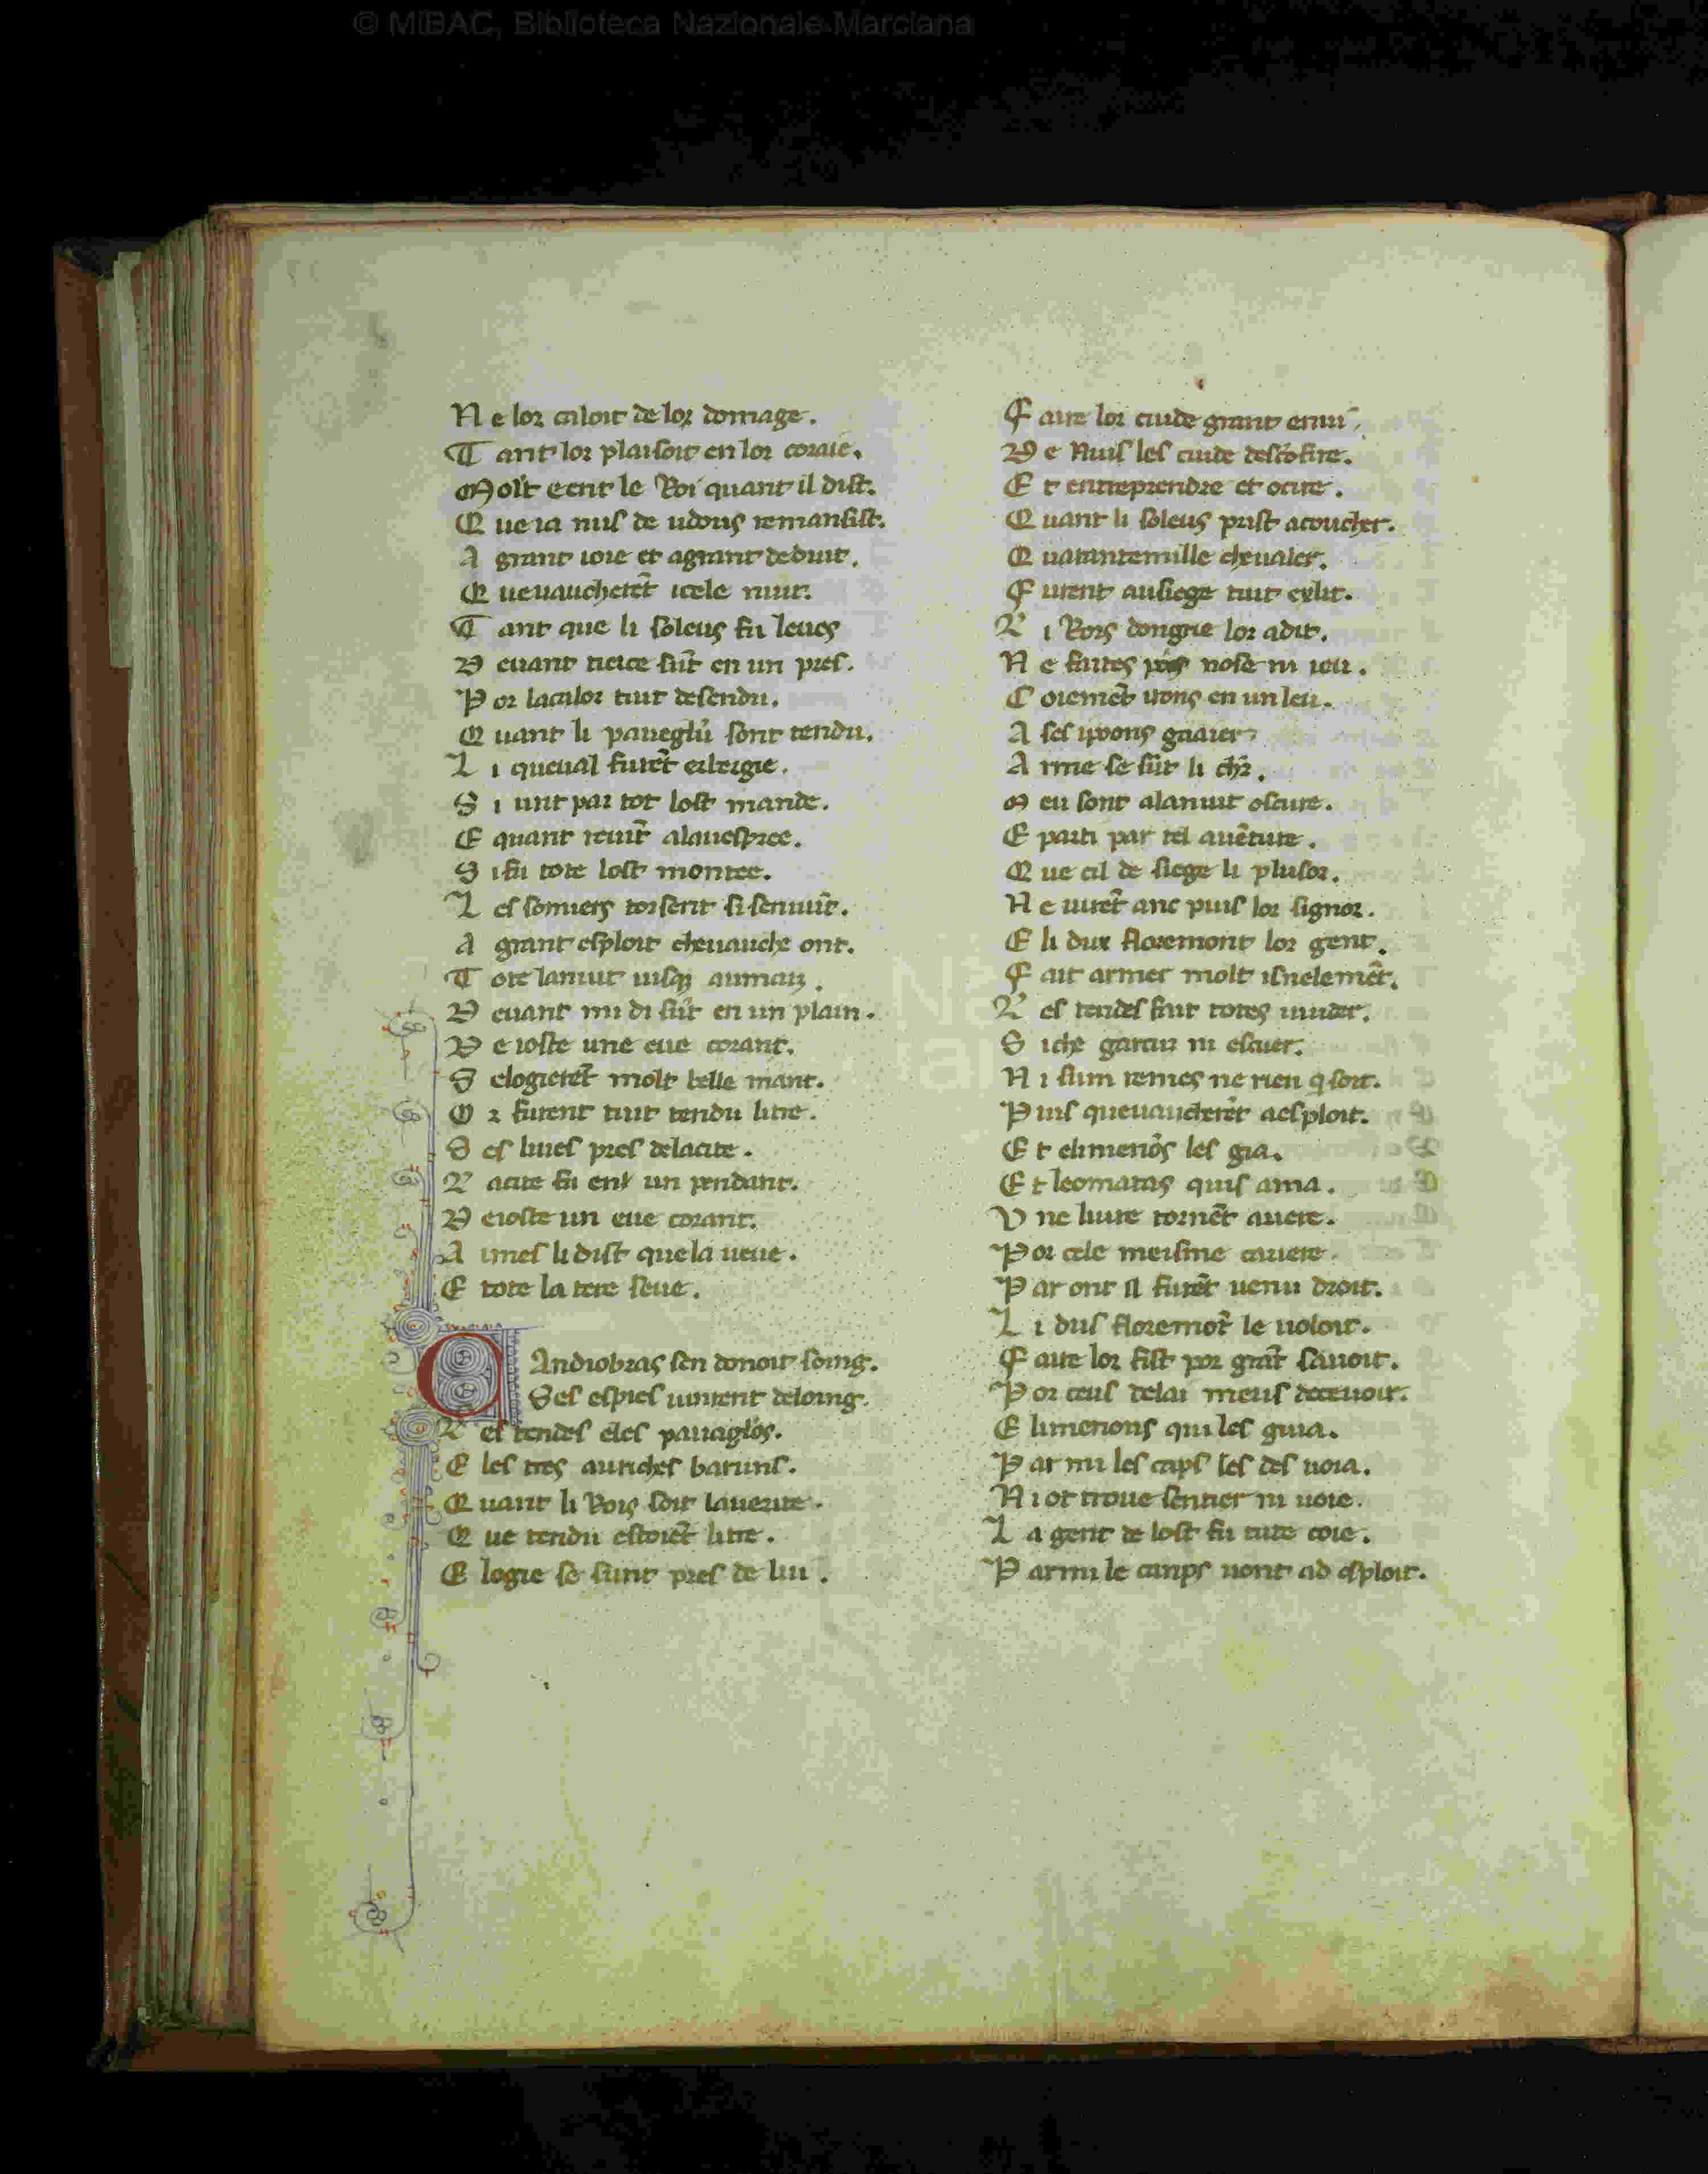 © MiBAC, Biblioteca Nazionale Marciana
N e lor caloit de lor domage.
T ant lor plaisoit en lor coraie.
Molt eent le Roi quant il dist.
Q ue ia nus de udous remansist.
A grant ioie et agrant deduit.
Q ueuaucherēt icele nuit.
T ant que li soleus fu leues
D euant tierce sūt en un pres.
P or lacalor tuit desendu.
Q uant li paueglū sont tendu.
L i queual furēt erbergie.
S i unt par tot lost mande.
E quant uenīt alauespree.
S ifu tote lost montee.
L es somiers torserit si senuūt.
A grant esploit cheuauche ont.
T ote lanuit iusq; aumain.
D euant mi di fūt en un plain.
D e ioste une eue corant.
S elogierēt molt belle mant.
O r furent tuit tendu li tre.
S es liues pres delacite.
L acite fu enſ un pendant.
D eioste un eue corant.
A imes li dist quela ueue.
E tote la tere seue.
C Andiobras sen donoit soing.
Ses espies uinrent deloing.
L es tendes eles pauaglōs.
E les tres auriches baruns.
Q uant li Rois soit lauerite.
Q ue tendu estoiēt li tre.
E logie se sunt pres de lui.
F aire lor cuide grant enui.
D e nuis les cuide descōfire.
E t entreprendre et ocire.
Q uant li soleus prist acoucher.
Q uarantemille cheualer.
F urent ausiege tuit eslit.
L i Rois dongrie lor adit.
N e faites nose ni ieu.
C oiemēt irons en un leu.
A ses irons gaaier
A rme se sūt li chr̄.
M eu sont alanuit oscure.
E parti par tel auēture.
Q ue cil de siege li plusor.
N e uirēt anc puis lor signor.
E li dux floremont lor gent.
F ait armer molt isnelemēt.
L es tendes fait totes uuider.
S iche garcuz ni escuer.
N i sum remes ne rien q soit.
P uis queuaucherēt aesploit.
E t elimenōs les gia.
E t leomatas quis ama.
U ne liuie tornēt auere.
P or cele meisme cariere.
P ar ont il furēt uenu droit.
L i dus floremōt le uoloit.
F aire lor fist por grāt sauoir.
P or ceus delai meus deceuoir.
E limenons qui les guia.
P ar mi les caps les des uoia.
N i ot troue sentier ni uoie.
L a gent de lost fu tute coie.
P armi le camps uont ad esploit.